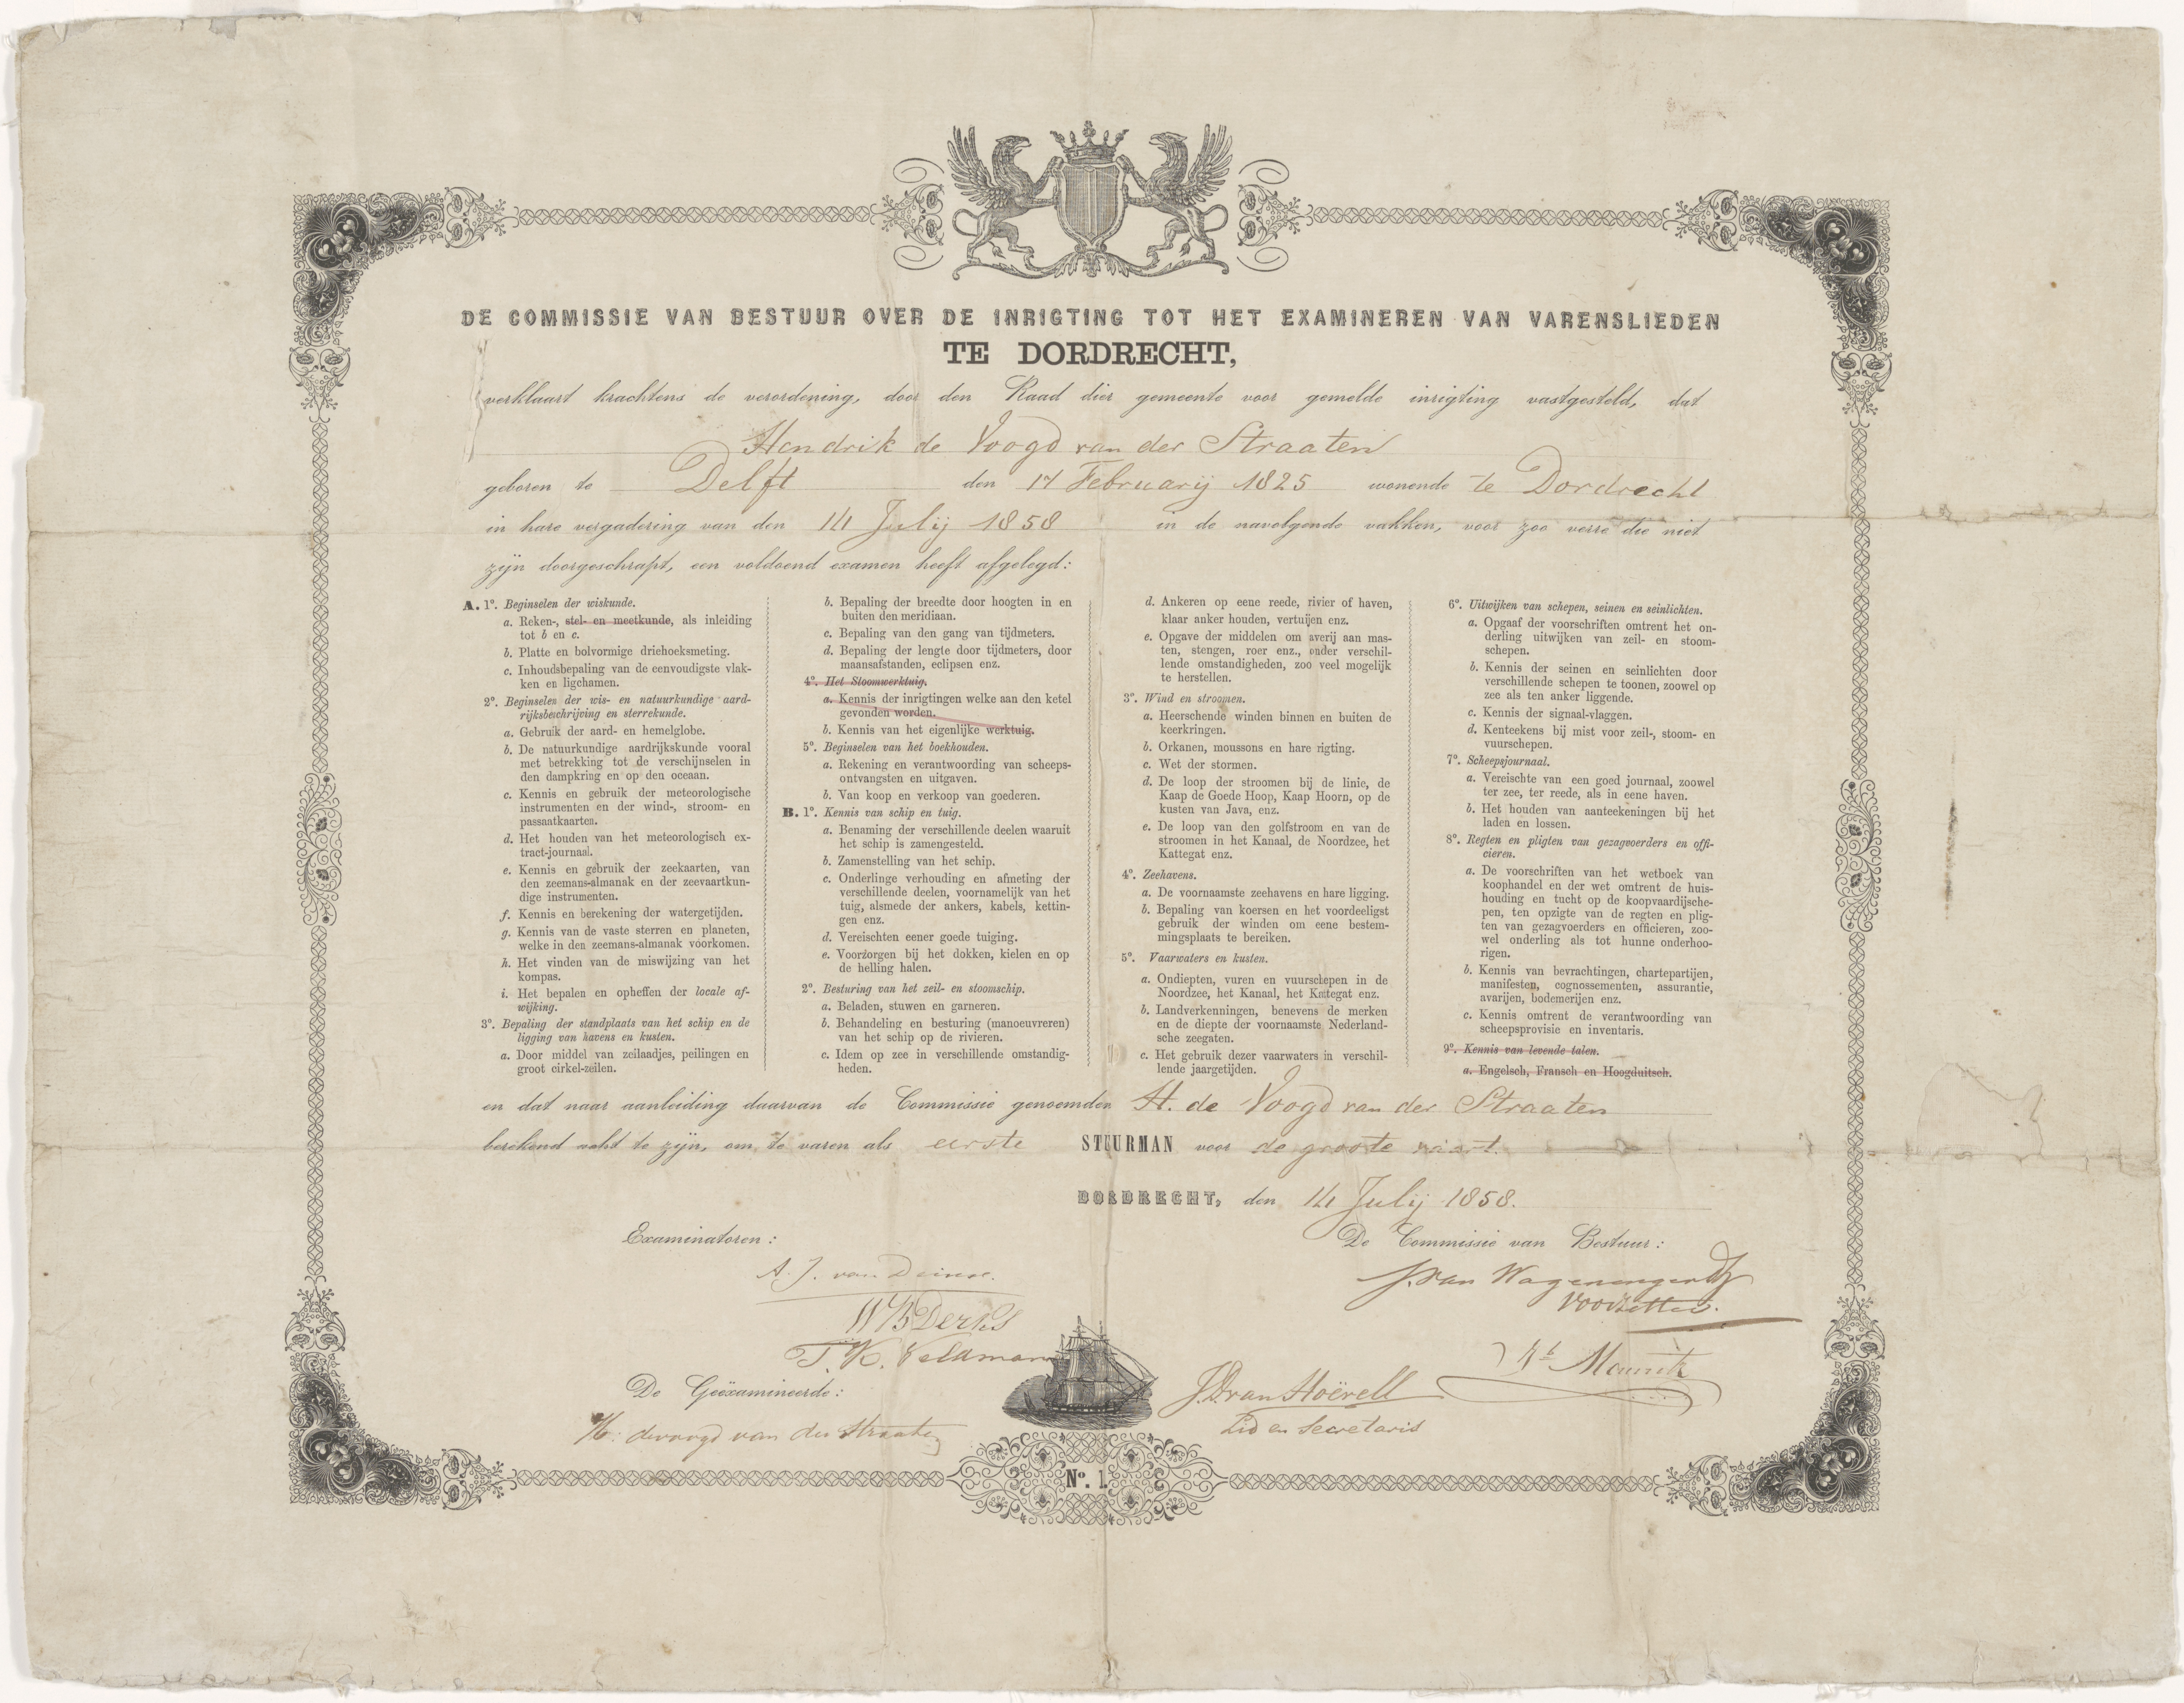 DE COMMISSIE VAN BESTUUR OVER DE INRIGTING TOT HET EXAMINEREN VAN VARENSLIEDEN
TE DORDRECHT,
verklaart krachtens de verordening, door den Raad dier gemeente voor gemelde inrigting vastgesteld, dat
Hendrik de Voogd van der Straaten
geboren te Delft den 17 Februarij 1825 wonende te Dordrecht
in hare vergadering van den 14 Julij 1858 in de navolgende vakken, voor zoo verre die niet
zijn doorgeschrapt, een voldoend examen heeft afgelegd:
A. 1º. Beginselen der wiskunde.
a. Reken-, stel- en meetkunde, als inleiding
tot b en c.
b. Platte en bolvormige driehoeksmeting.
c. Inhoudsbepaling van de eenvoudigste vlak-
ken en ligchamen.
2º. Beginselen der wis- en natuurkundige aard-
rijksbeschrijving en sterrekunde.
a. Gebruik der aard- en hemelglobe.
b. De natuurkundige aardrijkskunde vooral
met betrekking tot de verschijnselen in
den dampkring en op den oceaan.
c. Kennis en gebruik der meteorologische
instrumenten en der wind-, stroom- en
passaatkaarten.
d. Het houden van het meteorologisch ex-
tract-journaal.
e. Kennis en gebruik der zeekaarten, van
den zeemans-almanak en der zeevaartkun-
dige instrumenten.
f. Kennis en berekening der watergetijden.
g. Kennis van de vaste sterren en planeten,
welke in den zeemans-almanak voorkomen.
h. Het vinden van de miswijzing van het
kompas.
i. Het bepalen en opheffen der locale af-
wijking.
3º. Bepaling der standplaats van het schip en de
ligging van havens en kusten.
a. Door middel van zeilaadjes, peilingen en
groot cirkel-zeilen.
b. Bepaling der breedte door hoogten in en
buiten den meridiaan.
c. Bepaling van den gang van tijdmeters.
d. Bepaling der lengte door tijdmeters, door
maansafstanden, eclipsen enz.
4º. Het Stoomwerktuig.
a. Kennis der inrigtingen welke aan den ketel
gevonden worden.
b. Kennis van het eigenlijke werktuig.
5º. Beginselen van het boekhouden.
a. Rekening en verantwoording van scheeps-
ontvangsten en uitgaven.
b. Van koop en verkoop van goederen.
B. 1º. Kennis van schip en tuig.
a. Benaming der verschillende deelen waaruit
het schip is zamengesteld.
b. Zamenstelling van het schip.
c. Onderlinge verhouding en afmeting der
verschillende deelen, voornamelijk van het
tuig, alsmede der ankers, kabels, kettin-
gen enz.
d. Vereischten eener goede tuiging.
e. Voorzorgen bij het dokken, kielen en op
de helling halen.
2º. Besturing van het zeil- en stoomschip.
a. Beladen, stuwen en garneren.
b. Behandeling en besturing (manoeuvreren)
van het schip op de rivieren.
c. Idem op zee in verschillende omstandig-
heden.
d. Ankeren op eene reede, rivier of haven,
klaar anker houden, vertuijen enz.
e. Opgave der middelen om averij aan mas-
ten, stengen, roer enz., onder verschil-
lende omstandigheden, zoo veel mogelijk
te herstellen.
3º. Wind en stroomen.
a. Heerschende winden binnen en buiten de
keerkringen.
b. Orkanen, moussons en hare rigting.
c. Wet der stormen.
d. De loop der stroomen bij de linie, de
Kaap de Goede Hoop, Kaap Hoorn, op de
kusten van Java, enz.
e. De loop van den golfstroom en van de
stroomen in het Kanaal, de Noordzee, het
Kattegat enz.
4º. Zeehavens.
a. De voornaamste zeehavens en hare ligging.
b. Bepaling van koersen en het voordeeligst
gebruik der winden om eene bestem-
mingsplaats te bereiken.
5º. Vaarwaters en kusten.
a. Ondiepten, vuren en vuurschepen in de
Noordzee, het Kanaal, het Kattegat enz.
b. Landverkenningen, benevens de merken
en de diepte der voornaamste Nederland-
sche zeegaten.
c. Het gebruik dezer vaarwaters in verschil-
lende jaargetijden.
6º. Uitwijken van schepen, seinen en seinlichten.
a. Opgaaf der voorschriften omtrent het on-
derling uitwijken van zeil- en stoom-
schepen.
b. Kennis der seinen en seinlichten door
verschillende schepen te toonen, zoowel op
zee als ten anker liggende.
c. Kennis der signaal-vlaggen.
d. Kenteekens bij mist voor zeil-, stoom- en
vuurschepen.
7º. Scheepsjournaal.
a. Vereischte van een goed journaal, zoowel
ter zee, ter reede, als in eene haven.
b. Het houden van aanteekeningen bij het
laden en lossen.
8º. Regten en pligten van gezagvoerders en offi-
cieren.
a. De voorschriften van het wetboek van
koophandel en der wet omtrent de huis-
houding en tucht op de koopvaardijsche-
pen, ten opzigte van de regten en plig-
ten van gezagvoerders en officieren, zoo-
wel onderling als tot hunne onderhoo-
rigen.
b. Kennis van bevrachtingen, chartepartijen,
manifesten, cognossementen, assurantie,
avarijen, bodemerijen enz.
c. Kennis omtrent de verantwoording van
scheepsprovisie en inventaris.
9º. Kennis van levende talen.
a. Engelsch, Fransch en Hoogduitsch.
en dat naar aanleiding daarvan de Commissie genoemden H. de Voogd van der Straaten
berekend acht te zijn, om te varen als eerste STUURMAN voor de groote vaart.
DORDRECHT, den 14 Julij 1858.
Examinatoren:
De Commissie van Bestuur:
A. J. van
J. van Wagenengen
Voorzitter.
WB Derks
T. K. Veldman
J. D. van Hoëvell
Lid en Secretaris
De Geëxamineerde:
H. devoogd van der Straaten
No. 1.